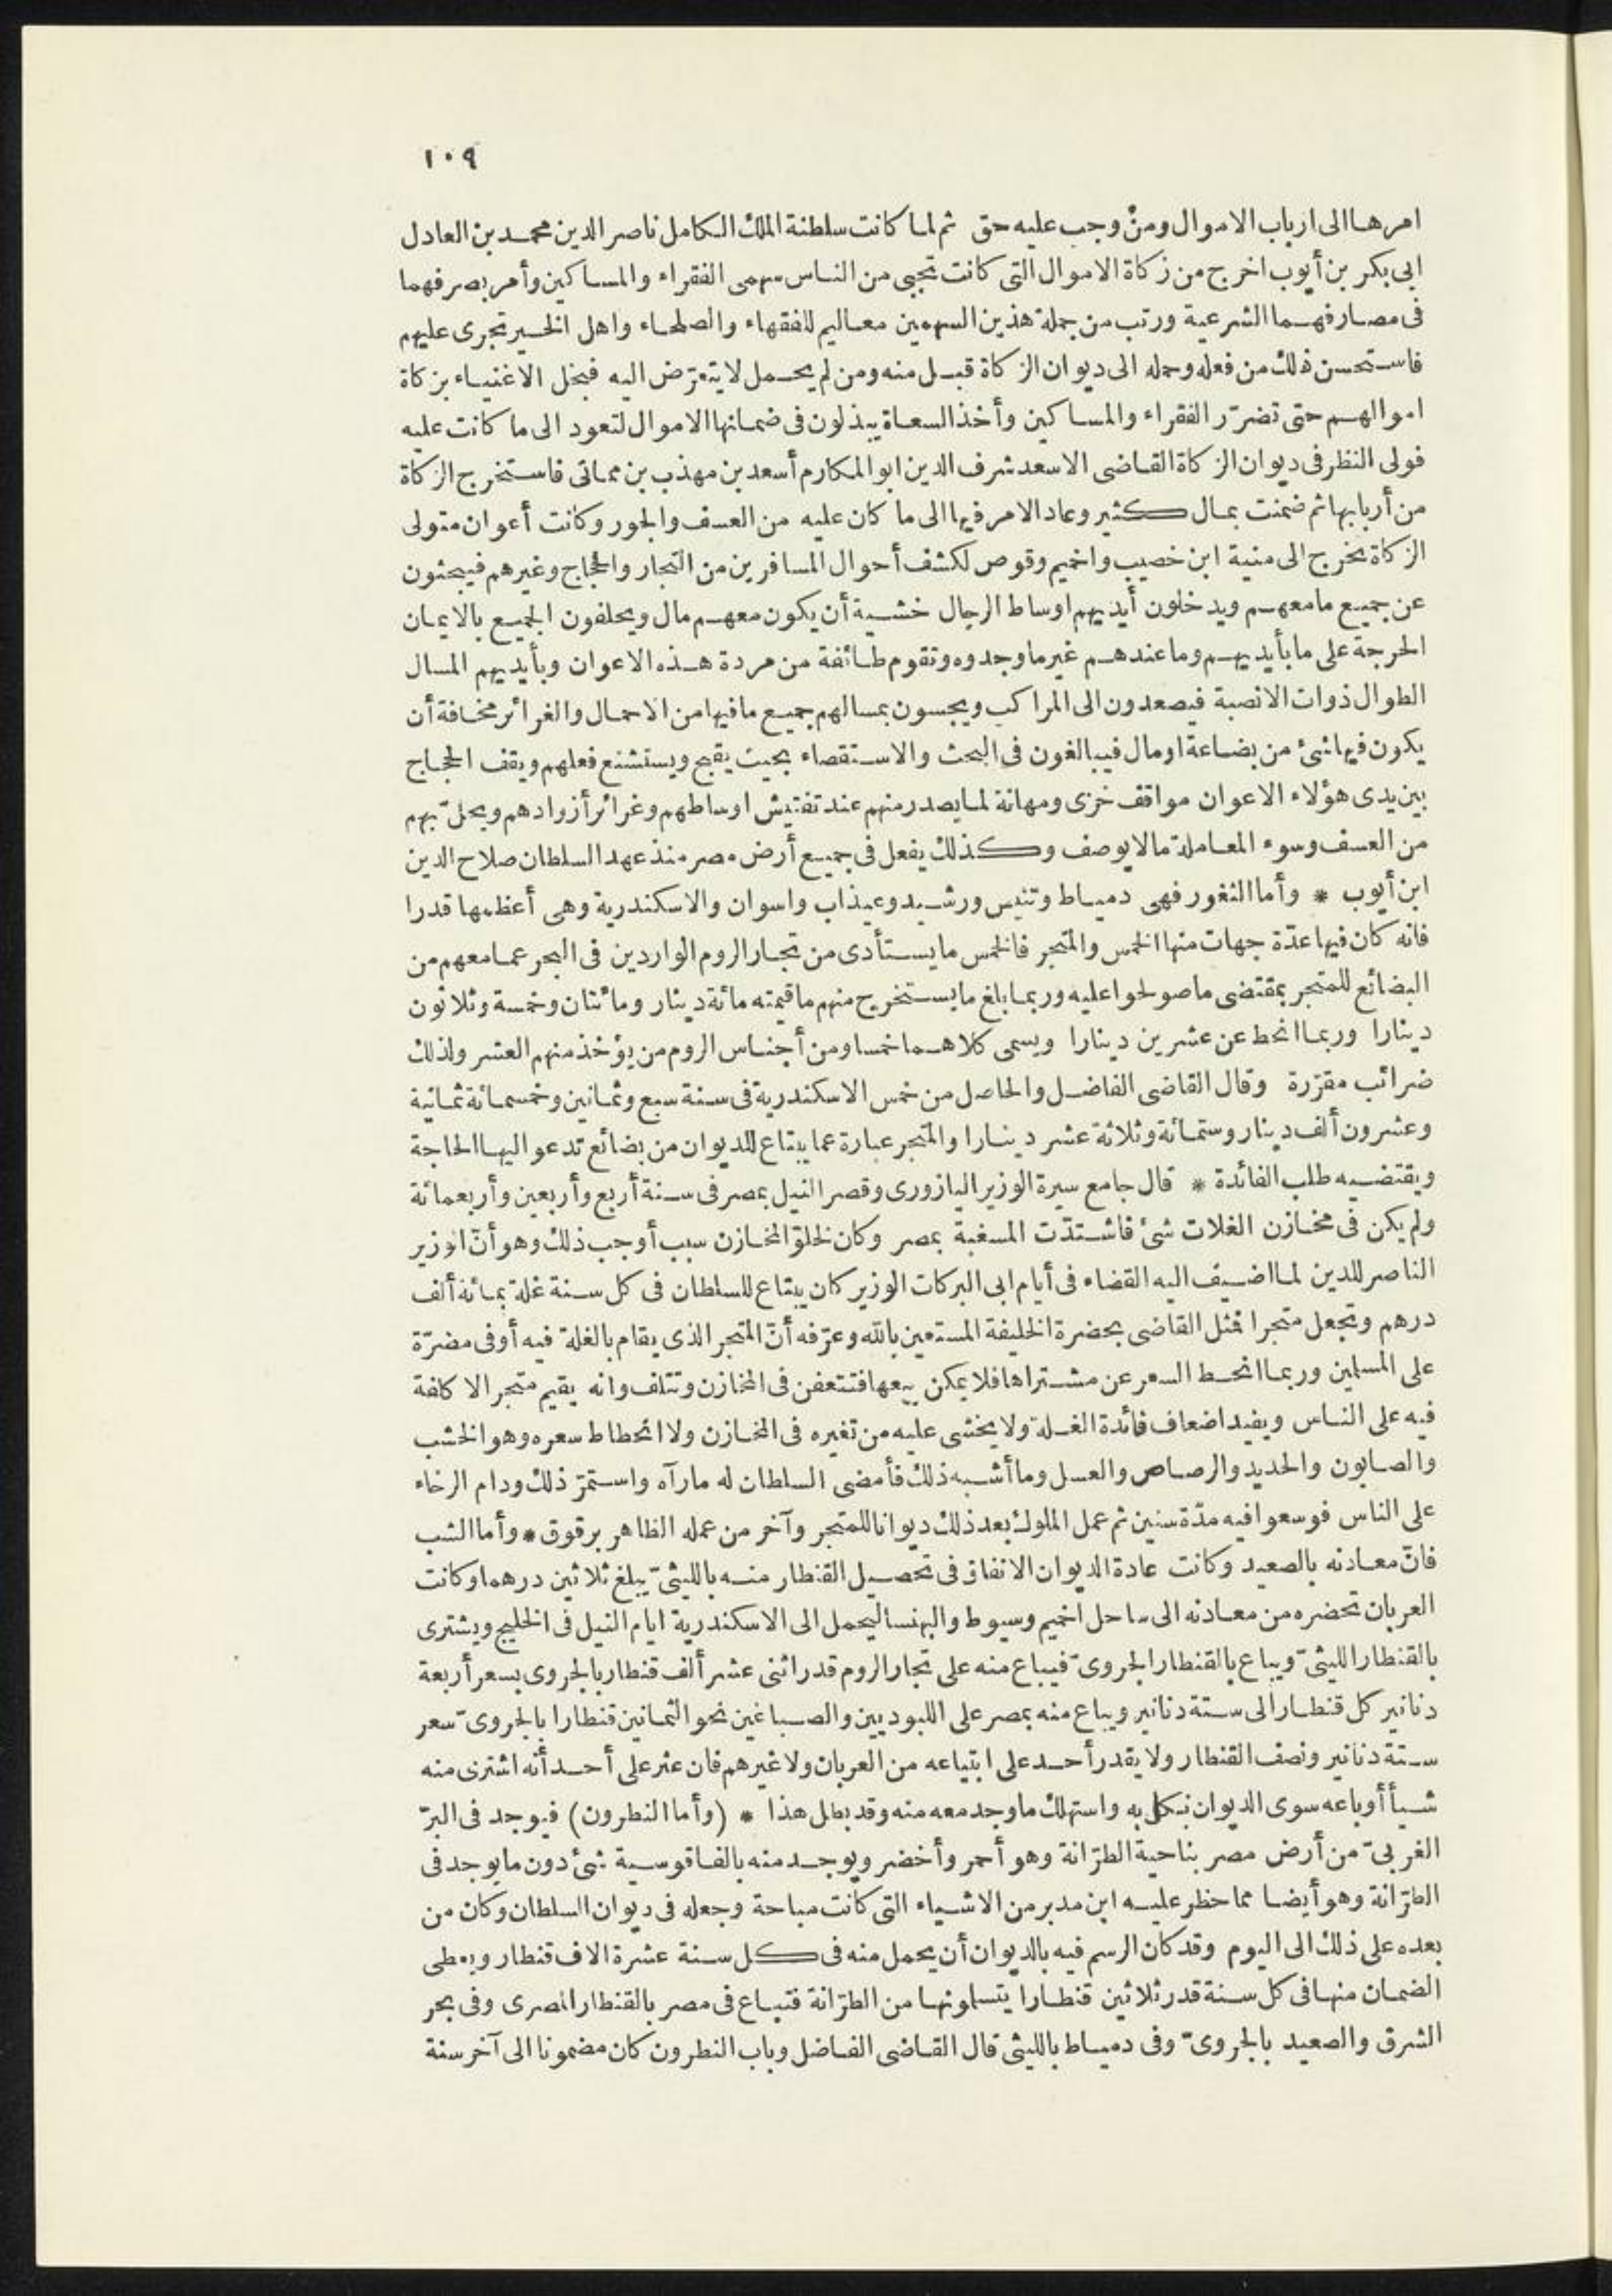 ١٠٩
امرها الى ارباب الاموال ومن وجب عليه حق ثم لما كانت سلطنة الملك الكامل ناصر الدين محمد بن العادل
ابى بكر بن أيوب اخرج من زكاة الاموال التى كانت تجبى من الناس سهمى الفقراء والمساكين وأمر بصرفهما
فى مصارفهما الشرعية ورتب من جملة هذين السهمين معاليم للفقهاء والصلحاء واهل الخير تجرى عليهم
فاستحسن ذلك من فعله وحمله الى ديوان الزكاة قبل منه ومن لم يحمل لا يتعرّض اليه فبخل الاغنياء بزكاة
اموالهم حتى تضرّر الفقراء والمساكين وأخذ السعاة يبذلون فى ضمانها الاموال لتعود الى ما كانت عليه
فولى النظر فى ديوان الزكاة القاضى الاسعد شرف الدين ابو المكارم أسعد بن مهذب بن مماتى فاستخرج الزكاة
من أربابها ثم ضمنت بمال كثير وعاد الامر فيها الى ما كان عليه من العسف والجور وكانت أعوان متولى
الزكاة تخرج الى منية ابن خصيب واخميم وقوص لكشف أحوال المسافرين من التجار والحجاج وغيرهم فيبحثون
عن جميع ما معهم ويدخلون أيديهم اوساط الرجال خشية أن يكون معهم مال ويحلفون الجميع بالايمان
الحرجة على ما بأيديهم وما عندهم غير ما وجدوه وتقوم طائفة من مردة هذه الاعوان وبأيديهم المسال
الطوال ذوات الانصبة فيصعدون الى المراكب ويجسون بمسالهم جميع ما فيها من الاحمال والغرائر مخافة أن
يكون فيها شئ من بضاعة او مال فيبالغون فى البحث والاستقصاء بحيث يقبح ويستشنع فعلهم ويقف الحجاج
بين يدى هؤلاء الاعوان مواقف خزى ومهانة لما يصدر منهم عند تفتيش اوساطهم وغرائر أزوادهم ويحلّ بهم
من العسف وسوء المعاملة ما لا يوصف وكذلك يفعل فى جميع أرض مصر منذ عهد السلطان صلاح الدين
ابن أيوب * وأما الثغور فهى دمياط وتنيس ورشيد وعيذاب واسوان والاسكندرية وهى أعظمها قدرا
فانه كان فيها عدّة جهات منها الخمس والمتجر فالخمس ما يستأدى من تجار الروم الواردين فى البحر عما معهم من
البضائع للمتجر بمقتضى ما صولحوا عليه وربما بلغ ما يستخرج منهم ما قيمته مائة دينار ومائتان وخمسة وثلاثون
دينارا وربما انحط عن عشرين دينارا ويسمى كلاهما خمسا ومن أجناس الروم من يؤخذ منهم العشر ولذلك
ضرائب مقرّرة وقال القاضى الفاضل والحاصل من خمس الاسكندرية فى سنة سبع وثمانين وخمسمائة ثمانية
وعشرون ألف دينار وستمائة وثلاثة عشر دينارا والمتجر عبارة عما يبتاع للديوان من بضائع تدعو اليها الحاجة
ويقتضيه طلب الفائدة * قال جامع سيرة الوزير اليازورى وقصر النيل بمصر فى سنة أربع وأربعين وأربعمائة
ولم يكن فى مخازن الغلات شئ فاشتدّت المسغبة بمصر وكان لخلوّ المخازن سبب أوجب ذلك وهو أنّ الوزير
الناصر للدين لما اضيف اليه القضاء فى أيام ابى البركات الوزير كان يبتاع للسلطان فى كل سنة غلة بمائة ألف
درهم وتجعل متجرا فمثل القاضى بحضرة الخليفة المستعين بالله وعرّفه أنّ المتجر الذى يقام بالغلة فيه أوفى مضرّة
على المسلمين وربما انحط السعر عن مشتراها فلا يمكن بيعها فتتعفن فى المخازن وتتلف وانه يقيم متجرا لا كلفة
فيه على الناس ويفيد اضعاف فائدة الغلة ولا يخشى عليه من تغيره فى المخازن ولا انحطاط سعره وهو الخشب
والصابون والحديد والرصاص والعسل وما أشبه ذلك فأمضى السلطان له ما رآه واستمرّ ذلك ودام الرخاء
على الناس فوسعوا فيه مدّة سنين ثم عمل الملوك بعد ذلك ديوانا للمتجر وآخر من عمله الظاهر برقوق * وأما الشب
فانّ معادنه بالصعيد وكانت عادة الديوان الانفاق فى تحصيل القنطار منه بالليثىّ يبلغ ثلاثين درهما وكانت
العربان تحضره من معادنه الى ساحل اخميم وسيوط والبهنسا ليحمل الى الاسكندرية ايام النيل فى الخليج ويشترى
بالقنطار الليثىّ ويباع بالقنطار الجروىّ فيباع منه على تجار الروم قدر اثنى عشر ألف قنطار بالجروى بسعر أربعة
دنانير كل قنطار الى ستة دنانير ويباع منه بمصر على اللبوديين والصباغين نحو الثمانين قنطارا بالجروىّ سعر
ستة دنانير ونصف القنطار ولا يقدر أحد على ابتياعه من العربان ولا غيرهم فان عثر على أحد أنه اشترى منه
شيأ أو باعه سوى الديوان نكل به واستهلك ما وجد معه منه وقد بطل هذا * (وأما النطرون) فيوجد فى البرّ
الغربىّ من أرض مصر بناحية الطرّانة وهو أحمر وأخضر ويوجد منه بالفاقوسية شئ دون ما يوجد فى
الطرّانة وهو أيضا مما حظر عليه ابن مدبر من الاشياء التى كانت مباحة وجعله فى ديوان السلطان وكان من
بعده على ذلك الى اليوم وقد كان الرسم فيه بالديوان أن يحمل منه فى كل سنة عشرة الاف قنطار ويعطى
الضمان منها فى كل سنة قدر ثلاثين قنطارا يتسلمونها من الطرّانة فتباع فى مصر بالقنطار المصرى وفى بحر
الشرق والصعيد بالجروىّ وفى دمياط بالليثى قال القاضى الفاضل وباب النطرون كان مضمونا الى آخر سنة